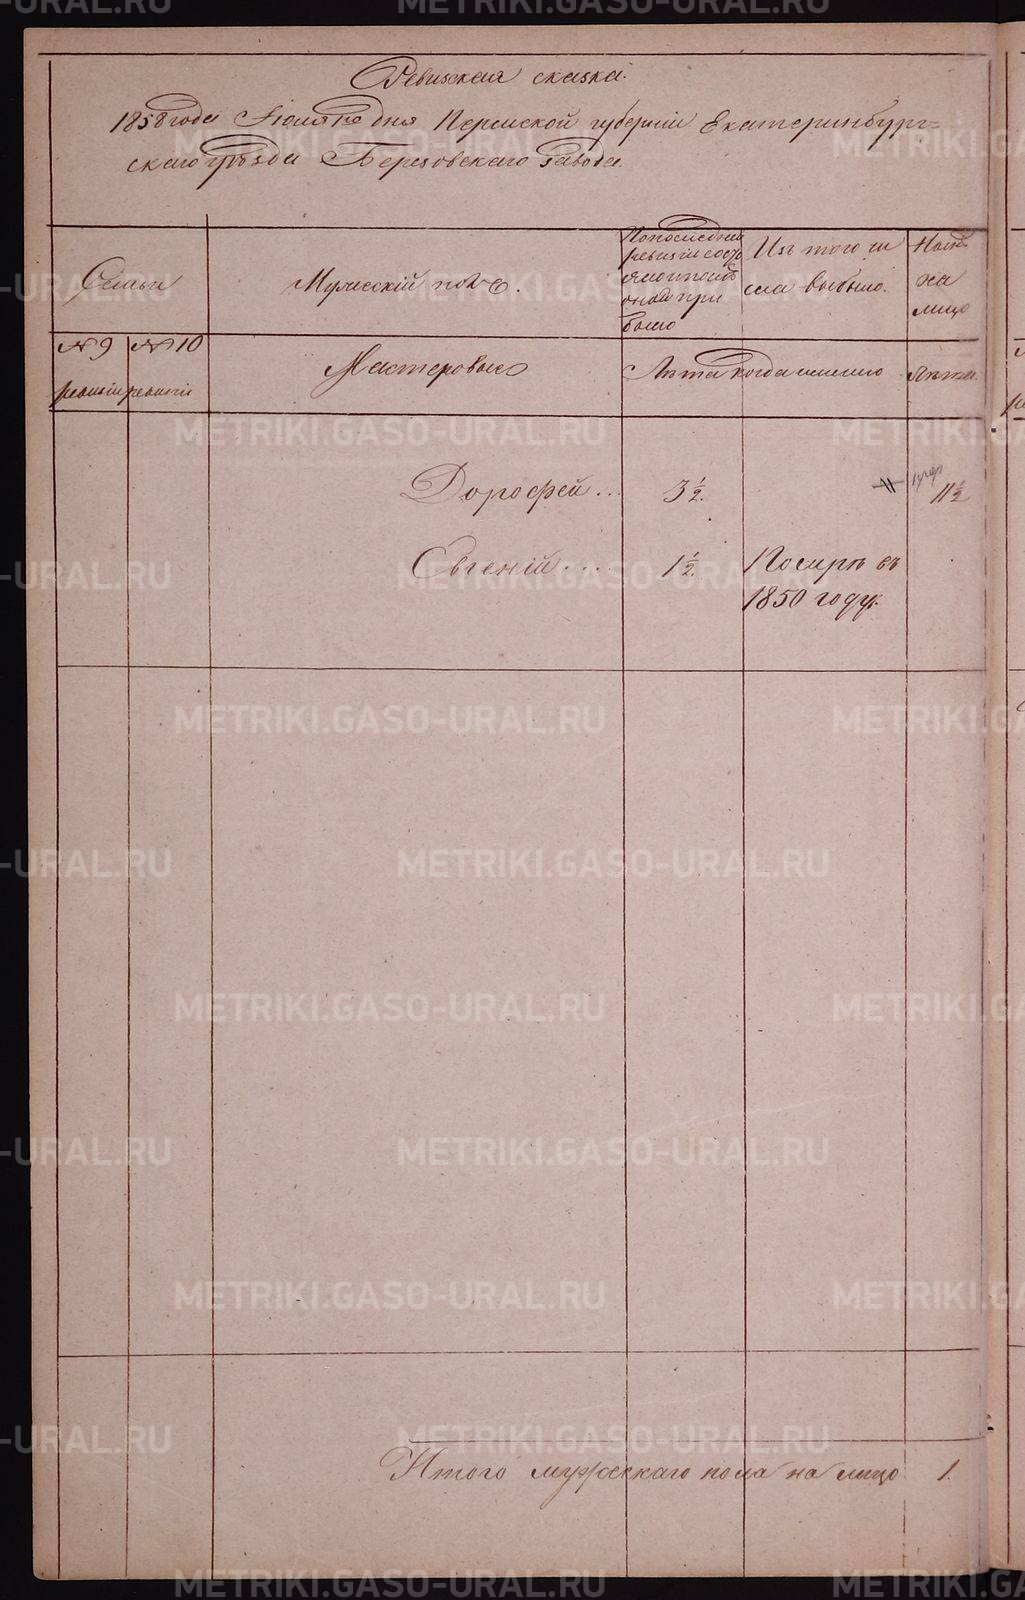 Ревизская сказка.
1858 года Іюля 10 дня Пермской губерніи Екатеринбург=
скаго уѣзда Березовскаго завода.
Семьи
Мужескій полъ.
По последней
ревизіи состо
яло и послѣ
оной при
было
Изъ того чи
сла выбыло.
Нынѣ
на
лицо
№ 9
ревизіи
№ 10
ревизіи
Мастеровые
Лѣта
когда именно
Лѣта.
Дорофей .. 3½. 11½
Евгеній .... 1½. Померъ въ
1850 году.
Итого мужескаго пола на лицо 1.
METRIKI.GASO-URAL.RU